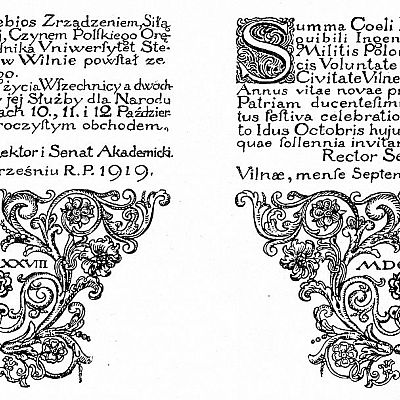 ebios Zrządzeniem, Siłą
j, Czynem Polskiego Orę-
nika Vniwersytet Ste-
w Wilnie powstał ze
go.
życia Wszechnicy a dwóch-
jej Służby dla Narodu
ach 10., 11. i 12 Paździer-
roczystym obchodem,
ektor i Senat Akademicki.
rześniu R.P. 1919.
XXVIII
Summa Coeli
quibili Ingen
Militis Polo
cis Voluntate
Civitate Vilne
Annus vitae novae pr
Patriam ducentesim
tus festiva celebratio
to Idus Octobris huju
quae sollennia invitan
Rector Se
Vilnæ, mense Septem
MDC